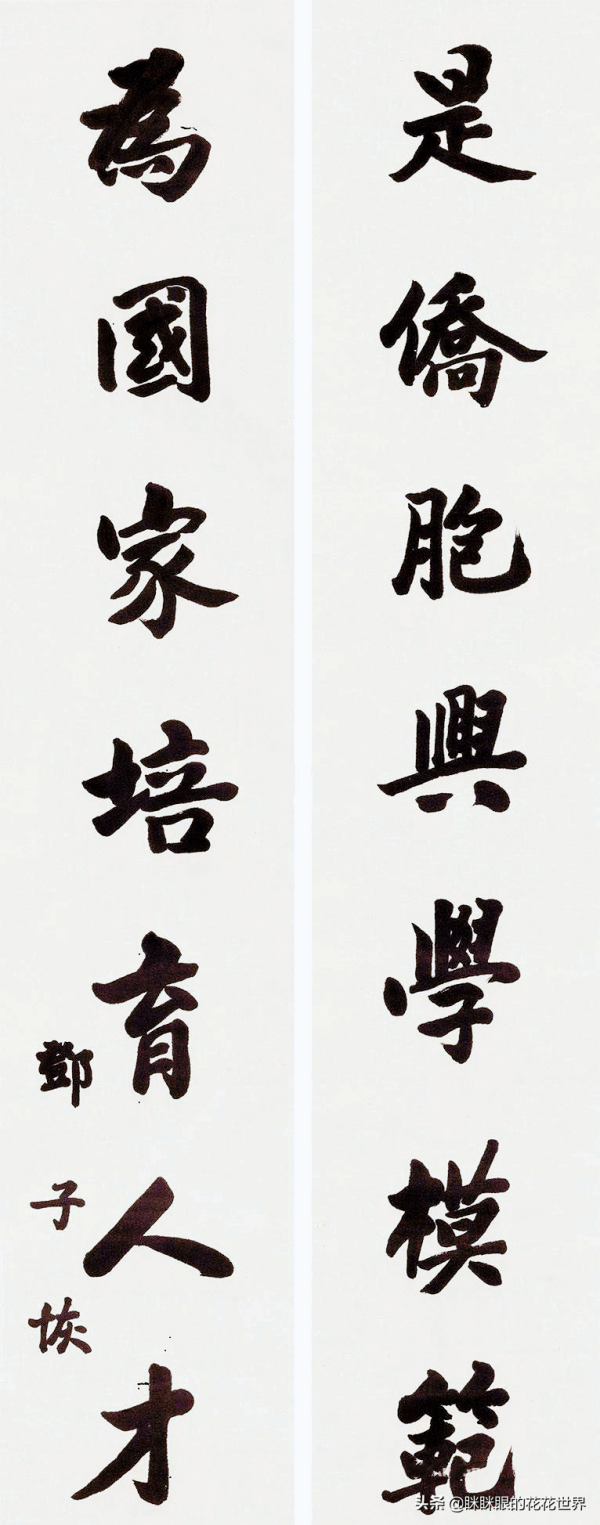 是僑胞興學模範
為國家培育人才
鄧子恢
头条 @眯眯眼的花花世界